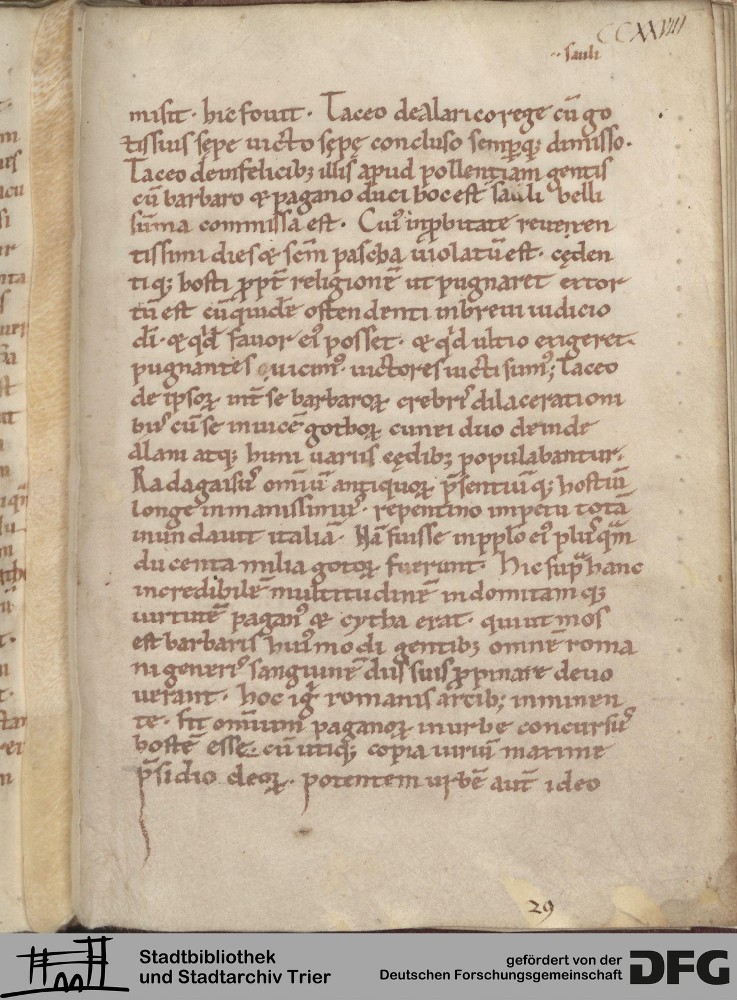 CCXXVIII
·· sauli
misit · hic fouit · Taceo de alarico rege cū go
tissuis sępe uicto sępę concluso semp̱q; dimisso ·
Taceo deinfelicib; illis apud pollentiam gentis
cū barbaro & pagano duci hoc est sauli belli
sūma commissa est · Cui' inp̱bitate reueren
tissimi dies & scm̄ pascha uiolatū est · cęden
tiq; hosti p̱pt̄ religionē ut pugnaret extor
tū est cū quidē ostendenti inbreui iudicio
dī · & qd̄ fauor ei' posset · & qd̄ ultio exigeret ·
pugnantes uicim' · uictores uicti sum'; Taceo
de ipsoꝝ int̄ se barbaroꝝ crebri' dilacerationi
bu' cū se inuicē gothoꝝ cunei duo deinde
alani atq; huni uariis cędib; populabantur ·
Radagaisu' omiū antiquoꝝ p̄sentiū q; hostiū
longe inmanissimu' · repentino impetu totā
inundauit italiā · Nā fuisse inpp̱lo ei' plu' quā
ducenta milia gotoꝝ fuerunt · Hic sup̱ hanc
incredibilē multitudinē indomitam q;
uirtutē pagan' & cytha erat · qui ut mos
est barbaris hui' modi gentib; omnē roma
ni generi' sanguinē diis suis p̱pinare deuo
uerant · hoc ig̱ romanis arcib; inminen
te · fit omnium paganoꝝ inurbe concursu'
hostē esse · cū utiq; copia uiriū maxime
p̄sidio deoꝝ · potentem urbē aut̄ ideo
29
Stadtbibliothek
und Stadtarchiv Trier
gefördert von der
Deutschen Forschungsgemeinschaft
DFG